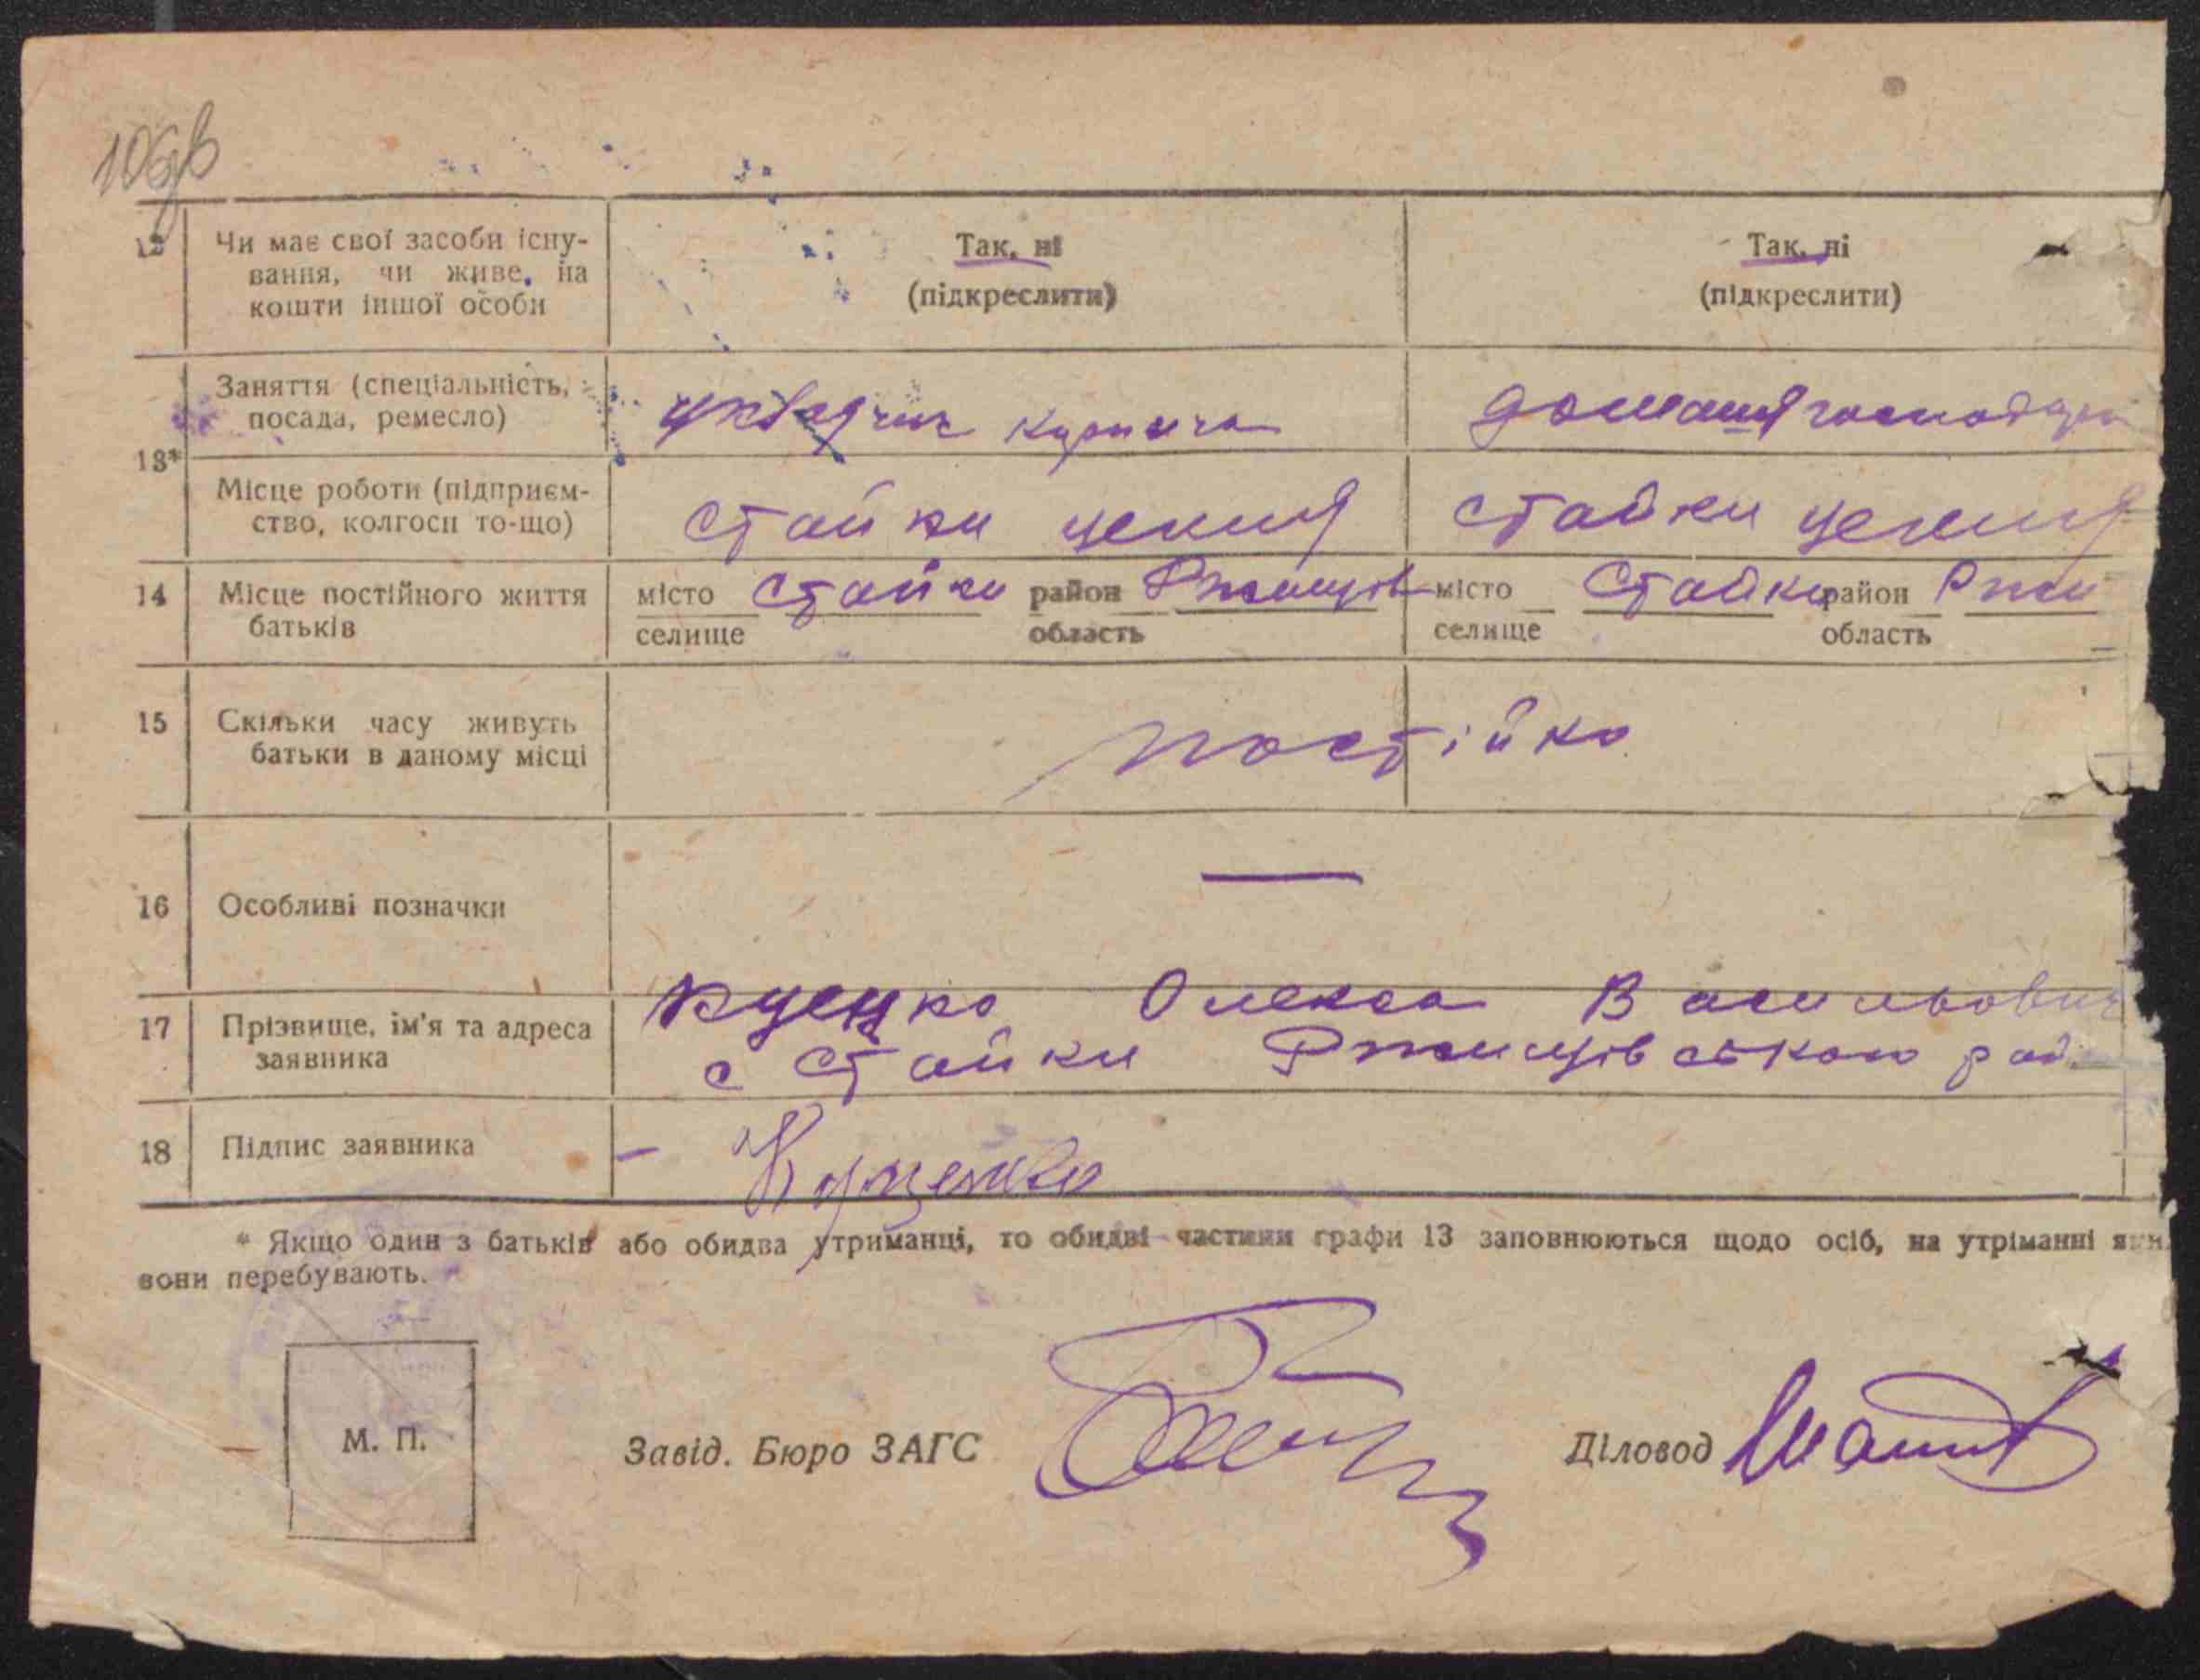 106
12 Чи має свої засоби існу-
вання, чи живе на
кошти іншої особи
Так, ні
(підкреслити)
Так, ні
(підкреслити)
13*
Заняття (спеціальність,
посада, ремесло)
домашня господарк
Місце роботи (підприєм-
ство, колгосп то-що)
Стайки
Стайки
14 Місце постійного життя
батьків
місто Стайки район Ржищів
селище область
місто Стайки район Ржи
селище область
15 Скільки часу живуть
батьки в даному місці
постійно
16 Особливі позначки
—
17 Прізвище, ім'я та адреса
заявника
Куценко Олекса Васильович
с Стайки Ржищівського рай.
18 Підпис заявника
– Куценко
* Якщо один з батьків або обидва утриманці, то обидві частини графи 13 заповнюються щодо осіб, на утріманні яки
вони перебувають.
М. П.
Завід. Бюро ЗАГС
Діловод